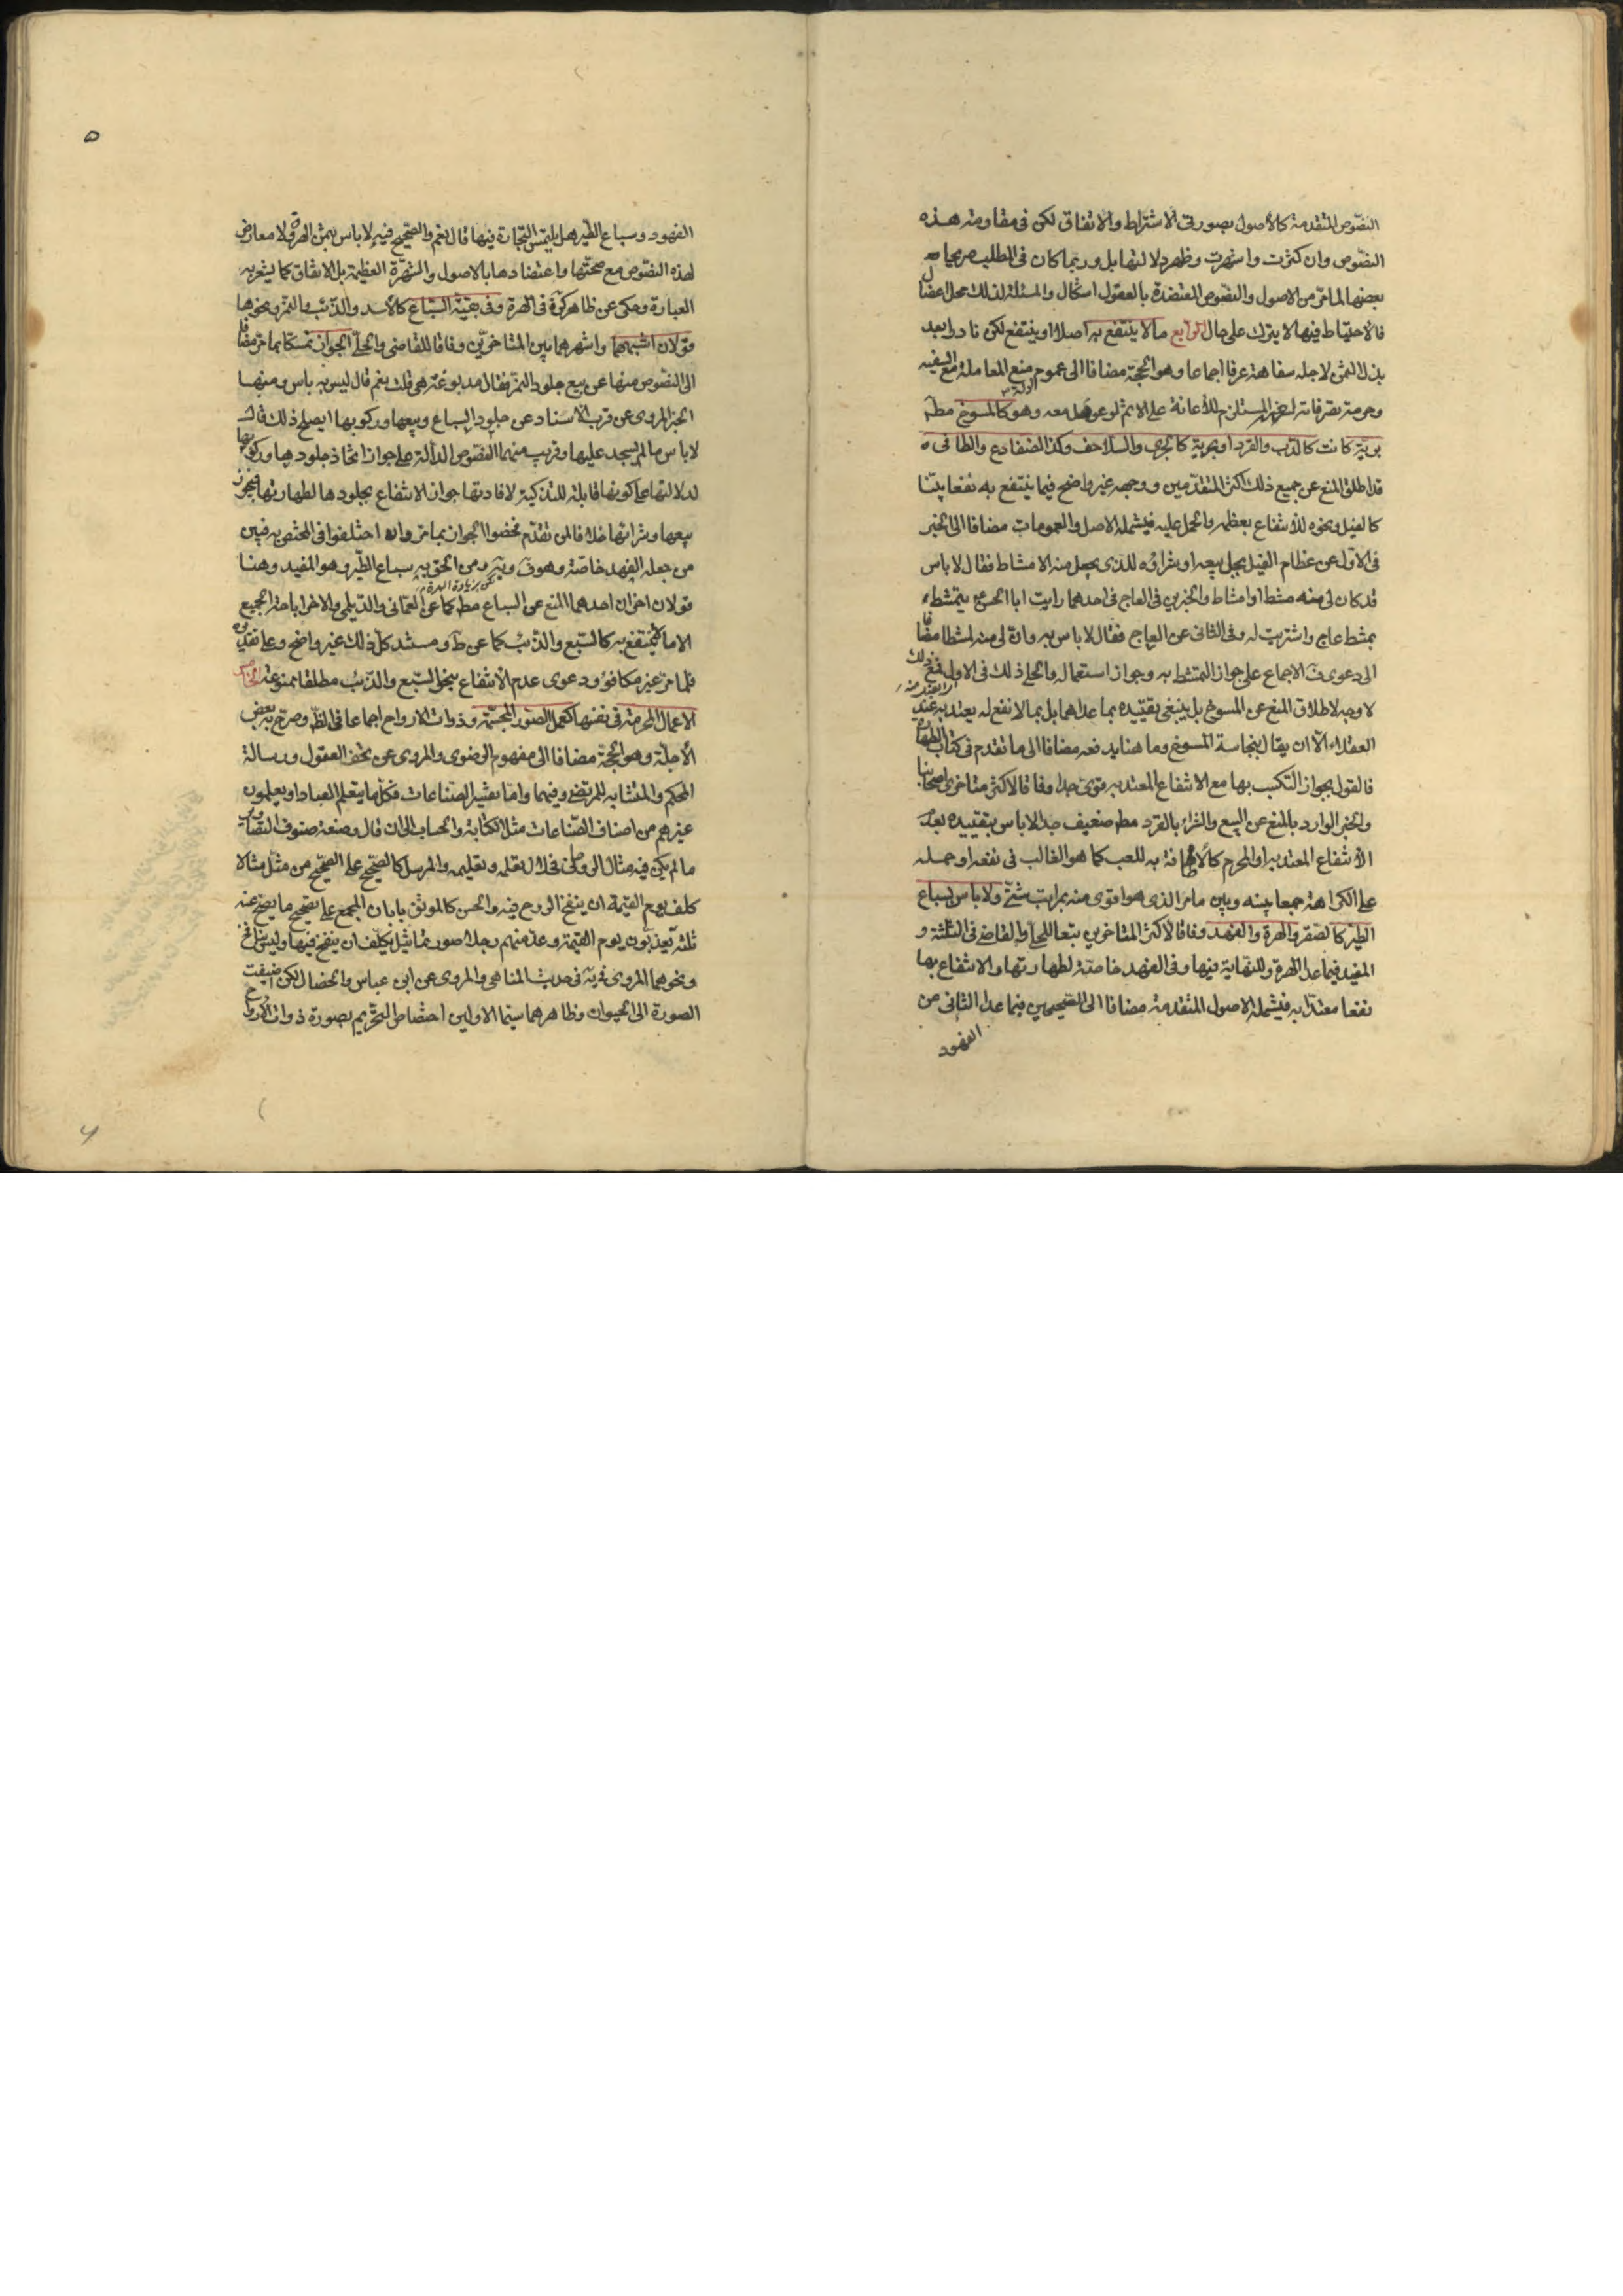 النصوص المتقدمة كالأصول بصورتى الاشتراط والاتفاق لكن فى مقاومته هذه
النصوص وان كثرت واشتهرت وظهر دلالتها بل وربما كان فى المطلب صريحا
بعضها لما مرّ من الاصول والنصوص المعتضدة بالعقول اشكال والمسئلة لذلك محل اعضال
فالاحتياط فيها لا يترك على حال الرابع ما لا ينتفع به اصلا او ينتفع لكن نادرا بعد
بذل الثمن لاجله سفاهة عرفا اجماعا وهو الحجة مضافا الى عموم ادلة منع المعاملة مع السفيه
وحرمة تصرفاته المستلزم للأعانة على الاثم لو عومل معه وهو كالمسوخ مطلقا
برّية كانت كالدب والقرد او بحرية كالجرى والسلاحف وكذا الضفادع والطافى
قد اطلق المنع عن جميع ذلك اكثر المتقدّمين ووجهه غير واضح فيما ينتفع به نفعا بيّنا
كالفيل ونحوه للأنتفاع بعظمه والحمل عليه فيشمله الاصل والعمومات مضافا الى الخبر
فى الاول عن عظام الفيل يحل بيعه او شراؤه للذى يجعل منه الامشاط فقال لا باس
قد كان لى منه مشط او امشاط والخبرين فى العاج فى احدهما رايت ابا الحسن يتمشط
بمشط عاج واشتريته له وفى الثانى عن العاج فقال لا باس به وان لى منه لمشطا مضافا
الى دعوى الاجماع على جواز التمشط به وجواز استعماله والحلى ذلك فى الاول
لا وجه لاطلاق المنع عن المسوخ بل ينبغى تقييده بما عداهما بل بما لا نفع له يعتد به عند
العقلاء الّا ان يقال بنجاسة المسوخ وما هنا يدفعه مضافا الى ما تقدم فى كتاب الطهارة
فالقول بجواز التكسب بها مع الانتفاع المعتد به قوى جدا وفاقا لاكثر متاخرى اصحابنا
والخبر الوارد بالمنع عن البيع والشراء بالقرد مطلقا ضعيف جدا لا باس بتقييده بعدم
الأنتفاع المعتد به او المحرم كالاطافة به للعب كما هو الغالب فى نفعه او حمله
على الكراهة جمعا بينه وبين ما مرّ الذى هو اقوى منه بمراتب شتّى ولا باس بسباع
الطير كالصقر والهرة والفهد وفاقا لاكثر المتاخرين تبعا للحلى والقاضى فى الثلثة و
المفيد فيما عدا الهرة وللنهاية فيها وفى الفهد خاصة لطهارتها والانتفاع بها
نفعا معتدّا به فيشمله الاصول المتقدمة مضافا الى الصحيحين فيما عدا الثانى عن
الفهود
٥
الفهود وسباع الطير هل يلتمس التجارة فيها قال نعم والصحيح فيه لا باس بثمن الهرة ولا معارض
لهذه النصوص مع صحتها واعتضادها بالاصول والشهرة العظيمة بل الاتفاق كما يشعر به
العبارة وحكى عن ظاهر كرة فى الهرة وفى بقية السباع كالأسد والذئب والنمر ونحوها
قولان اشبههما واشهرهما بين المتاخرّين وفاقا للقاضى والحلى الجواز تمسّكا بما مرّ مضافا
الى النصوص منها عن بيع جلود النمر فقال مدبوغة هى قلت نعم قال ليس به باس ومنها
الخبر المروى عن قرب الاسناد عن جلود السباع وبيعها وركوبها ايصلح ذلك قال
لا باس ما لم يسجد عليها وقريب منهما النصوص الدالة على جواز اتخاذ جلودها وركوبها
لدلالتها على كونها قابلة للتذكية لافادتها جواز الانتفاع بجلودها لطهارتها فيجوز
بيعها وشرائها خلافا لمن تقدم فخصّوا الجواز بما مرّ وان اختلفوا فى المختص به فبين
من جعله الفهد خاصة وهو ف ويه ومن الحق به سباع الطير وهو المفيد وهنا
لكن بزيادة الهرة
قولان اخران احدهما المنع عن السباع مطلقا كما عن العمانى والديلمى والاخر اباحة الجميع
الا ما لا ينتفع به كالسّبع والذئب كما عن ط ومستند كل ذلك غير واضح وعلى تقديره
فلما مرّ غير مكافؤ ودعوى عدم الأنتفاع بنحو السّبع والذئب مطلقا ممنوعة الخامس
الاعمال المحرمة فى نفسها كعمل الصّور المجسّمة وذوات الارواح اجماعا فى الظّ وصرّح به بعض
الأجلّة وهو الحجة مضافا الى مفهوم الرضوى والمروى عن تحف العقول ورسالة
المحكم والمتشابه للمرتضى وفيهما واما تفسير الصناعات فكل ما يتعلم العباد او يعلمون
غيرهم من اصناف الصّناعات مثل الكتابة والحساب الى ان قال وصنعة صنوف التصاوير
ما لم يكن فيه مثال الروحانى فحلال تعلّمه وتعليمه والمرسل كالصحيح على الصحيح من مثّل مثالا
كلف يوم القيمة ان ينفخ الروح فيه والحسن كالموثق بابان المجمع على تصحيح ما يصح عنه
ثلثة يعذبون يوم القيمة وعد منهم رجلا صور تماثيل يكلف ان ينفخ فيها وليس بنافخ
ونحوهما المروى فى حديث المناهى والمروى عن ابن عباس والخصال لكن اضيفت
الصورة الى الحيوان وظاهرهما سيّما الاولين اختصاص التحريم بصورة ذوات الارواح